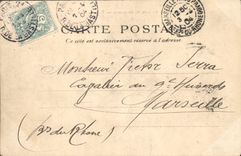 CARTE POSTALE
Ce côté est exclusivement réservé à l'adresse
Monsieur Victor Serra
Cavalier au 9e Hussards
Marseille
(Bs du Rhône)